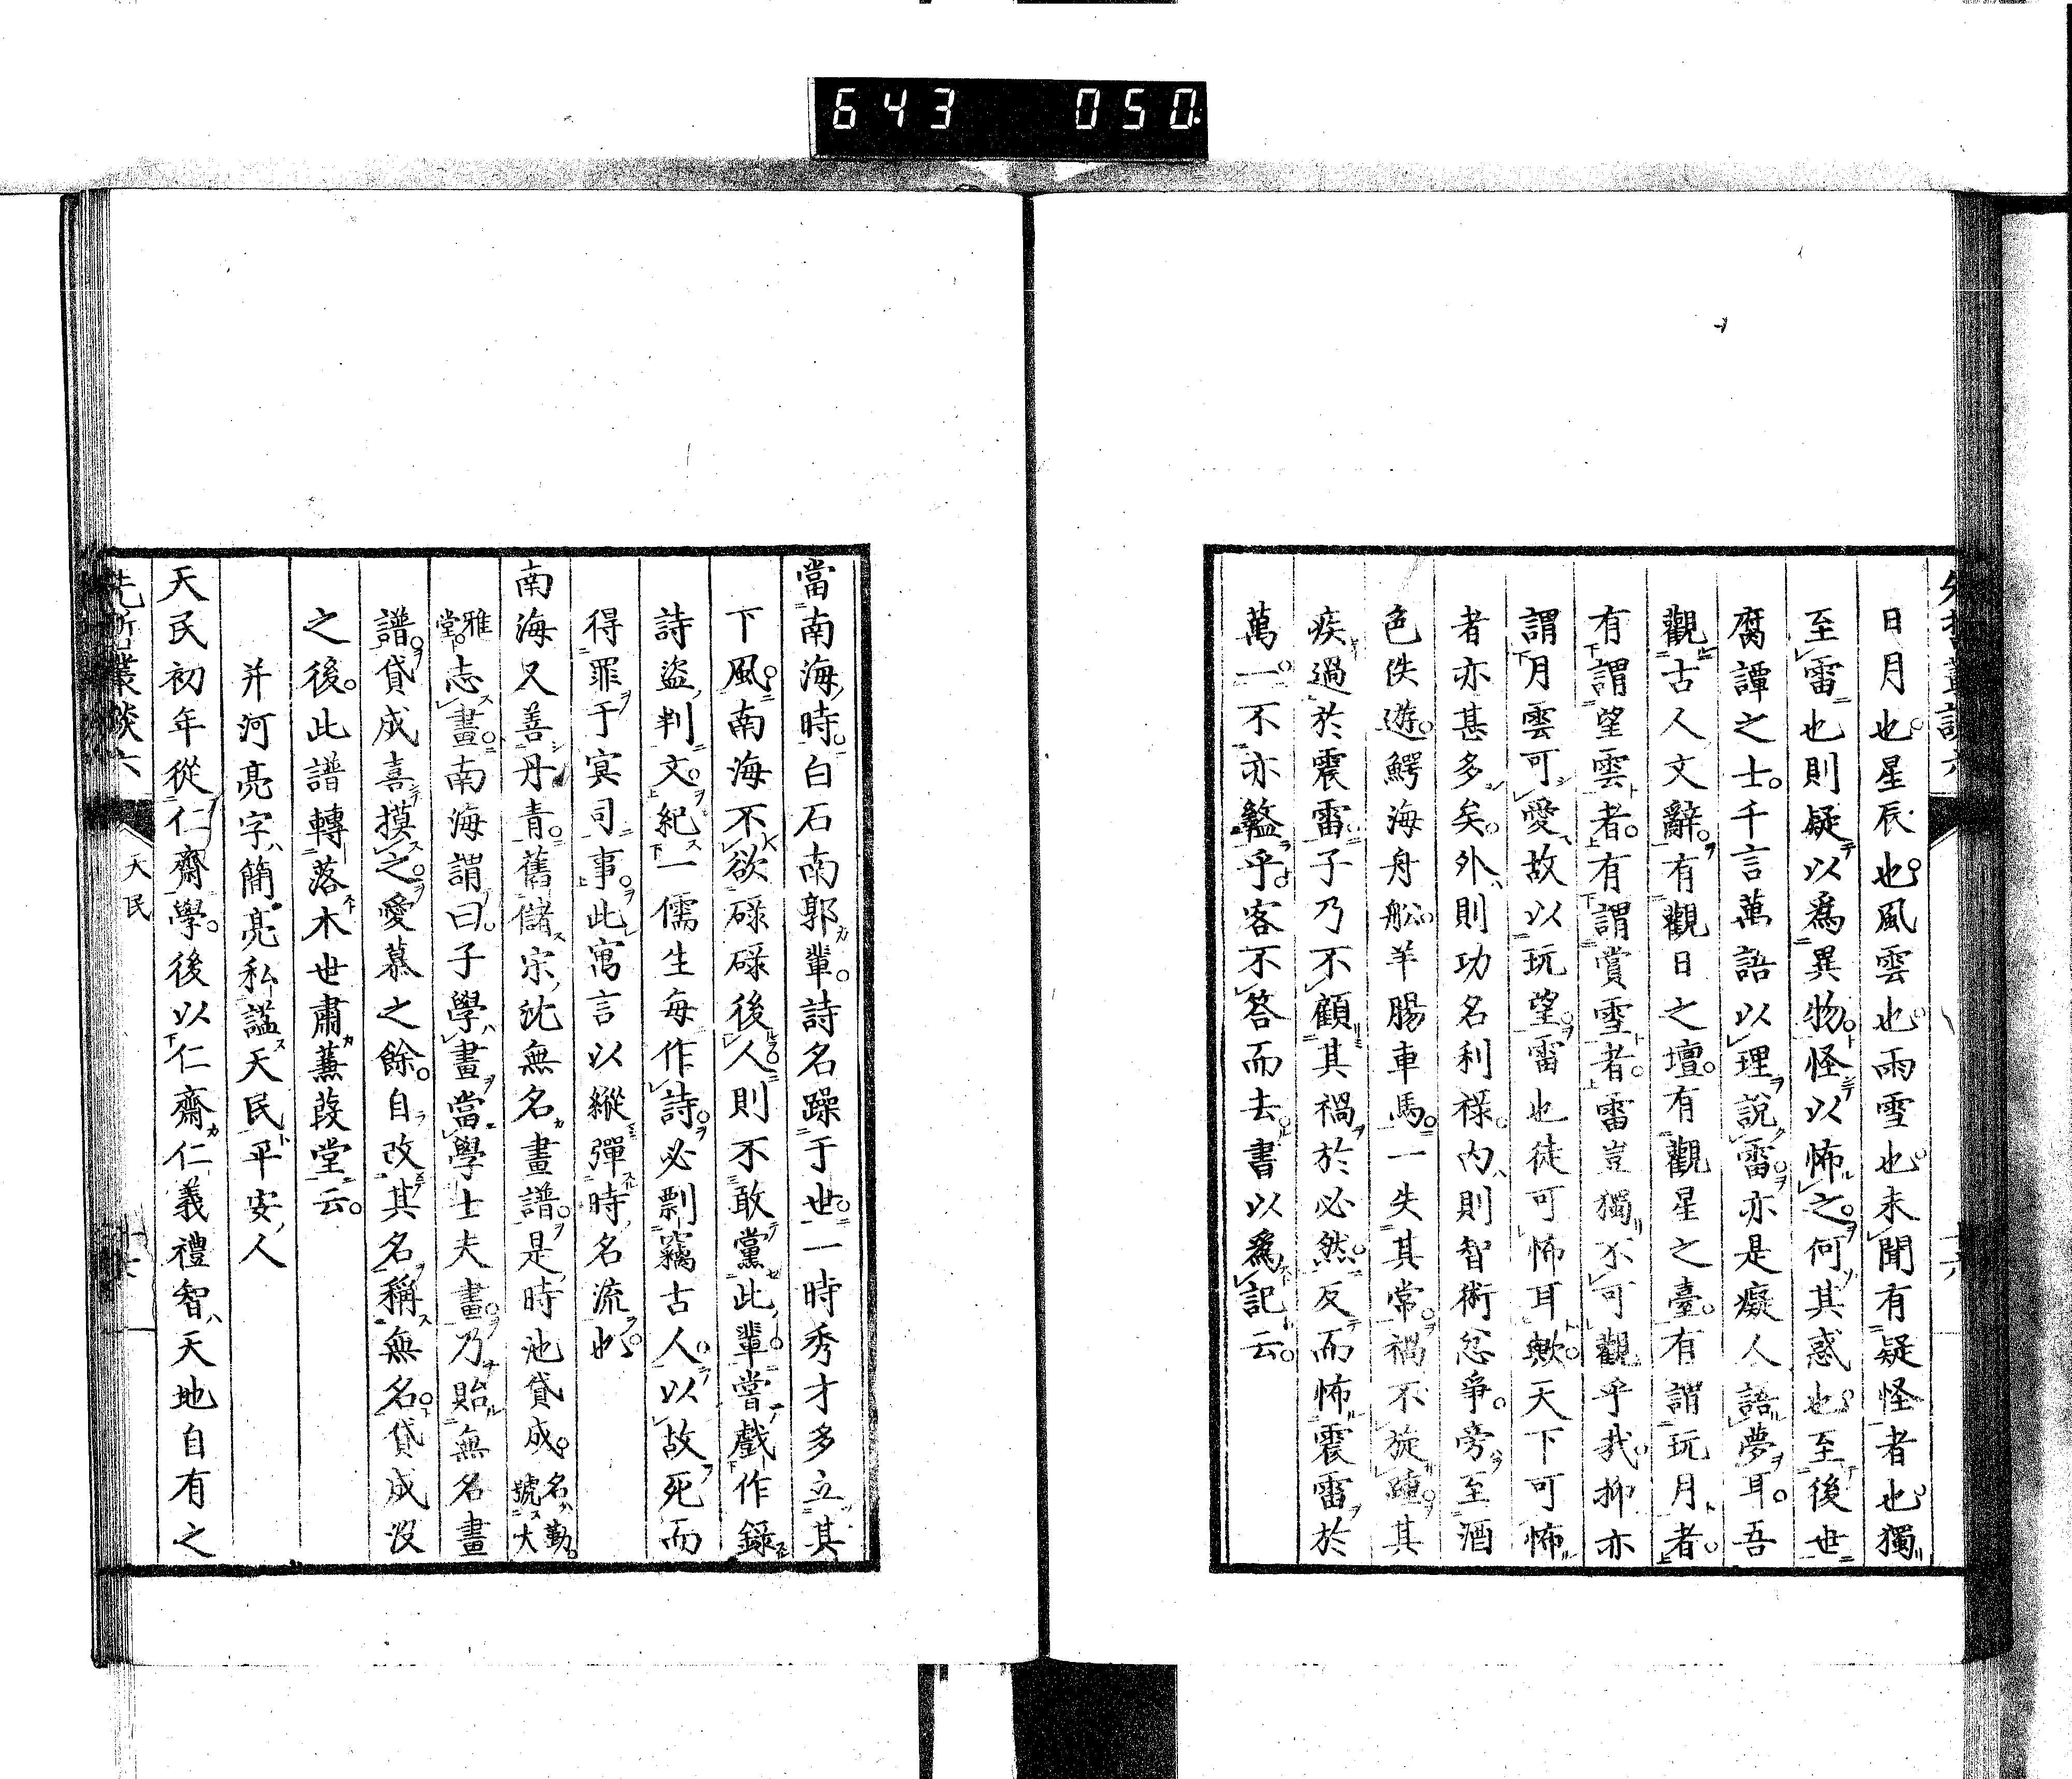 643 050
日月也星辰也風雲也雨雪也未聞有疑怪者也獨
至雷也則疑以爲異物怪以怖之何其惑也至後世
腐譚之士千言萬語以理說雷亦是癡人語夢耳吾
觀古人文辭有觀日之壇有觀星之臺有謂玩月者
有謂望雲者有謂賞雪者雷豈獨不可觀乎我抑亦
謂月雲可愛故以玩望雷也徒可怖耳歟天下可怖
者亦甚多矣外則功名利祿內則智術忿爭旁至酒
色佚遊鰐海舟舩羊腸車馬一失其常禍不旋踵其
疾過於震雷子乃不顧其禍於必然反而怖震雷於
萬一不亦盭乎客不答而去書以爲記云
當南海時白石南郭輩詩名躁于世一時秀才多立其
下風南海不欲碌碌後人則不敢黨此輩嘗戲作錄
詩盜判文紀一儒生每作詩必剽竊古人以故死而
得罪于冥司事此寓言以縱彈時名流也
南海又善丹青舊儲宋沈無名畫譜是時池貸成名勤號大
雅堂志畫南海謂曰子學畫當學士夫畫乃貽無名畫
譜貸成喜摸之愛慕之餘自改其名稱無名貸成沒
之後此譜轉落木世肅蒹葭堂云
并河亮字簡亮私謚天民平安人
天民初年從仁齋學後以仁齋仁義禮智天地自有之
先哲叢談六
天民